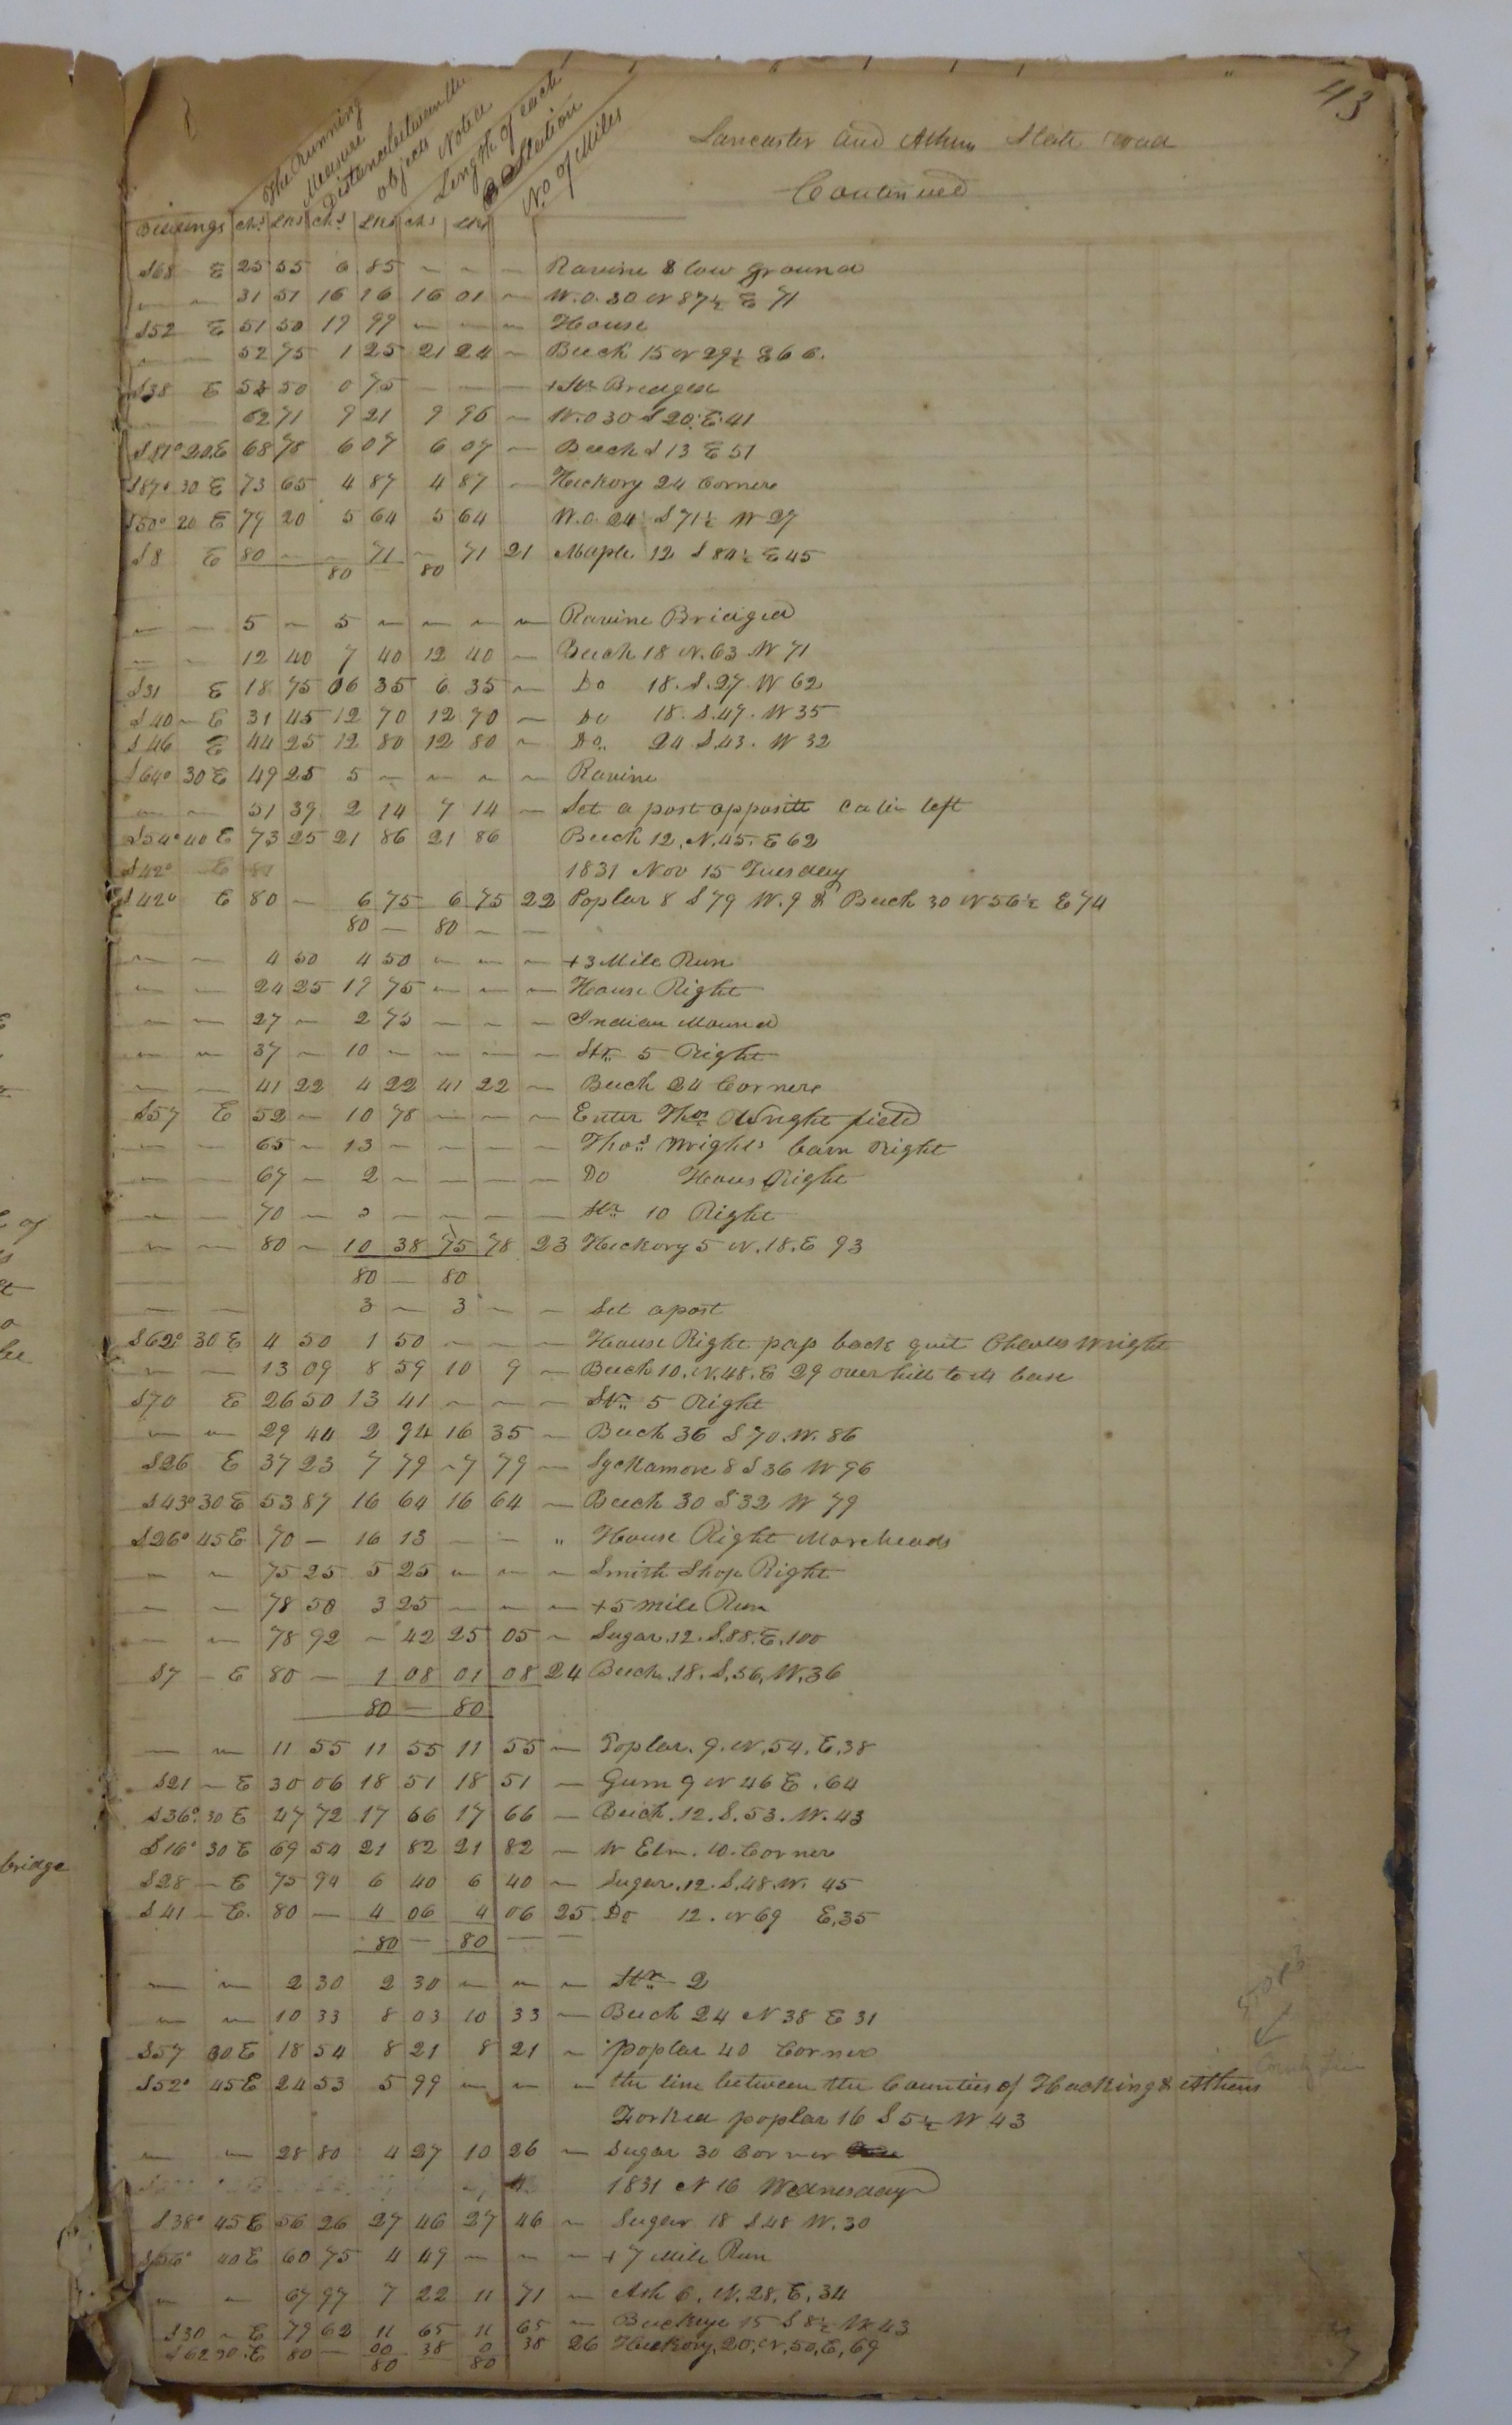 43
Lancaster and Athens State road
Continued
The Running Measure
Distance between the objects Noted
Length of each Station
No. of Miles
Bearings Chs Lks Chs Lks Chs Lks
S68 E 25 55 6 85 ~ ~ ~ Ravine & low ground
~ ~ 31 51 16 16 01 ~ W.O. 30 N 87½ E 71
S52 E 51 50 19 99 ~ ~ ~ House
~ ~ 52 75 1 25 21 24 ~ Beech 15 N 29½ E 66.
S38 E 53 50 0 75 ~ ~ ~ + Str Bridged
~ ~ 62 71 9 21 9 96 ~ W.O 30 S 20. E. 41
S81° 20 E 68 78 6 07 6 07 ~ Beech S 13 E 51
S87° 30 E 73 65 4 87 4 87 ~ Hickory 24 Corner
S50° 20 E 79 20 5 64 5 64 W.O. 24 S 71½ W 27
S8 E 80 ~ ~ 71 ~ 71 21 Maple 12 S 84½ E 45
80 80
~ ~ 5 ~ 5 ~ ~ ~ ~ Ravine Bridged
~ ~ 12 40 7 40 12 40 ~ Beech 18 N. 63 W 71
S31 E 18 75 06 35 6 35 ~ Do 18. S. 27. W 62
S40 ~ E 31 45 12 70 12 70 ~ Do 18. S. 47. W 35
S46 E 44 25 12 80 12 80 ~ Do. 24 S 43. W 32
S64° 30 E 49 25 5 ~ ~ ~ ~ Ravine
~ ~ 51 39 2 14 7 14 ~ Set a post opposite cabin left
S54° 40 E 73 25 21 86 21 86 Beech 12. N. 45. E 62
S42° E 80 1831 Nov 15 Tuesday
S42° E 80 ~ 6 75 6 75 22 Poplar 8 S 79 W. 9 & Beech 30 N 56½ E 74
80 ~ 80 ~ ~
~ ~ 4 50 4 50 ~ ~ ~ + 3 Mile Run
~ ~ 24 25 19 75 ~ ~ ~ House Right
~ ~ 27 ~ 2 75 ~ ~ ~ Indian Mound
~ ~ 37 ~ 10 ~ ~ ~ ~ Str. 5 Right
~ ~ 41 22 4 22 41 22 ~ Beech 24 Corner
S57 E 52 ~ 10 78 ~ ~ ~ Enter Thos Wright field
~ ~ 65 ~ 13 ~ ~ ~ ~ Thos Wrights barn Right
~ ~ 67 ~ 2 ~ ~ ~ ~ Do Hous Right
~ ~ 70 ~ 3 ~ ~ ~ ~ Str 10 Right
~ ~ 80 ~ 10 38 75 78 23 Hickory 5 N. 18. E 93
80 ~ 80
~ ~ 3 ~ 3 ~ ~ Set a post
S62° 30 E 4 50 1 50 ~ ~ ~ House Right pap back quit Charles Wright
~ ~ 13 09 8 59 10 9 ~ Beech 10. N. 48. E 29 over hill to its base
S70 E 26 50 13 41 ~ ~ ~ Str. 5 Right
~ ~ 29 44 2 94 16 35 ~ Beech 36 S 70. W. 86
S26 E 37 23 7 79 ~7 79 ~ Syckamore 8 S 36 W 96
S43° 30 E 53 87 16 64 16 64 ~ Beech 30 S 32 W 79
S26° 45 E 70 ~ 16 13 ~ ~ " House Right Moreheads
~ ~ 75 25 5 25 ~ ~ ~ Smith Shop Right
~ ~ 78 50 3 25 ~ ~ ~ + 5 mile Run
~ ~ 78 92 ~ 42 25 05 ~ Sugar. 12. S. 88. E. 100
S7 ~ E 80 ~ 1 08 01 08 24 Beech. 18. S. 56. W. 36
80 ~ 80
~ ~ 11 55 11 55 11 55 ~ Poplar. 9. N. 54. E. 38
S21 ~ E 30 06 18 51 18 51 ~ Gum 9 N 46 E. 64
S36° 30 E 47 72 17 66 17 66 ~ Beich. 12. S. 53. W. 43
S16° 30 E 69 54 21 82 21 82 ~ W Elm. 10. Corner
S28 ~ E 75 94 6 40 6 40 ~ Sugar. 12. S. 48. W. 45
S41 ~ E. 80 ~ 4 06 4 06 25 Do 12. N 69 E. 35
80 ~ 80 ~ ~
~ ~ 2 30 2 30 ~ ~ ~ Str 2
~ ~ 10 33 8 03 10 33 ~ Beech 24 N 38 E 31
S57 30 E 18 54 8 21 8 21 ~ poplar 40 Corner
S52° 45 E 24 53 5 99 ~ ~ ~ the line between the Counties of Hocking & Athens
County Line
Forked poplar 16 S 5½ W 43
~ ~ 28 80 4 27 10 26 ~ Sugar 30 Corner
1831 N 16 Wednesday
S38° 45 E 56 26 27 46 27 46 ~ Sugar 18 S 48 W. 30
S56° 40 E 60 75 4 49 ~ ~ ~ + 7 Mile Run
~ ~ 67 97 7 22 11 71 ~ Ash 6. N. 28. E. 34
S30 ~ E 79 62 11 65 11 65 ~ Buckeye 15 S 8½ W 43
S62 30. E 80 ~ 00 38 0 38 26 Hickory, 20, N, 50, E, 69
80 80
bridge